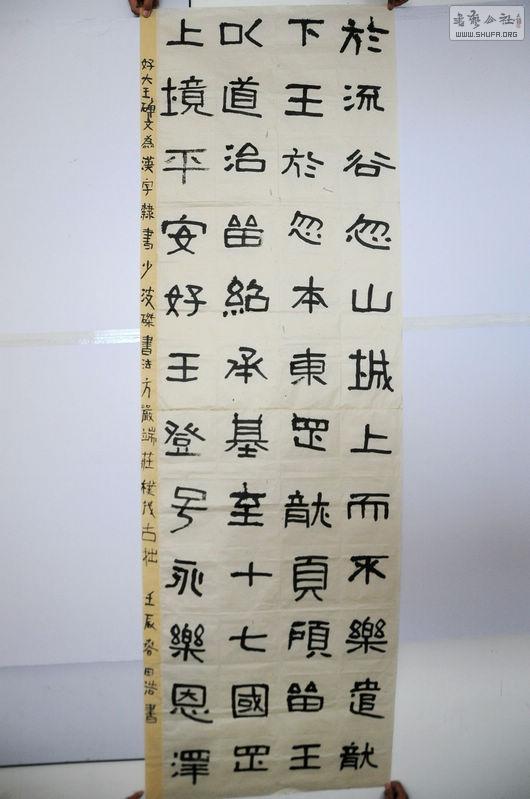 於流谷忽山城上而不樂遣龍
下王於忽本東罡龍頁碩留王
以道治留紹承基至十七國罡
上境平安好王登号永樂恩澤
好大王碑文為漢字隸書少波磔書法方嚴端莊樸茂古拙 壬辰春田浩書
書藝公社
WWW.SHUFA.ORG